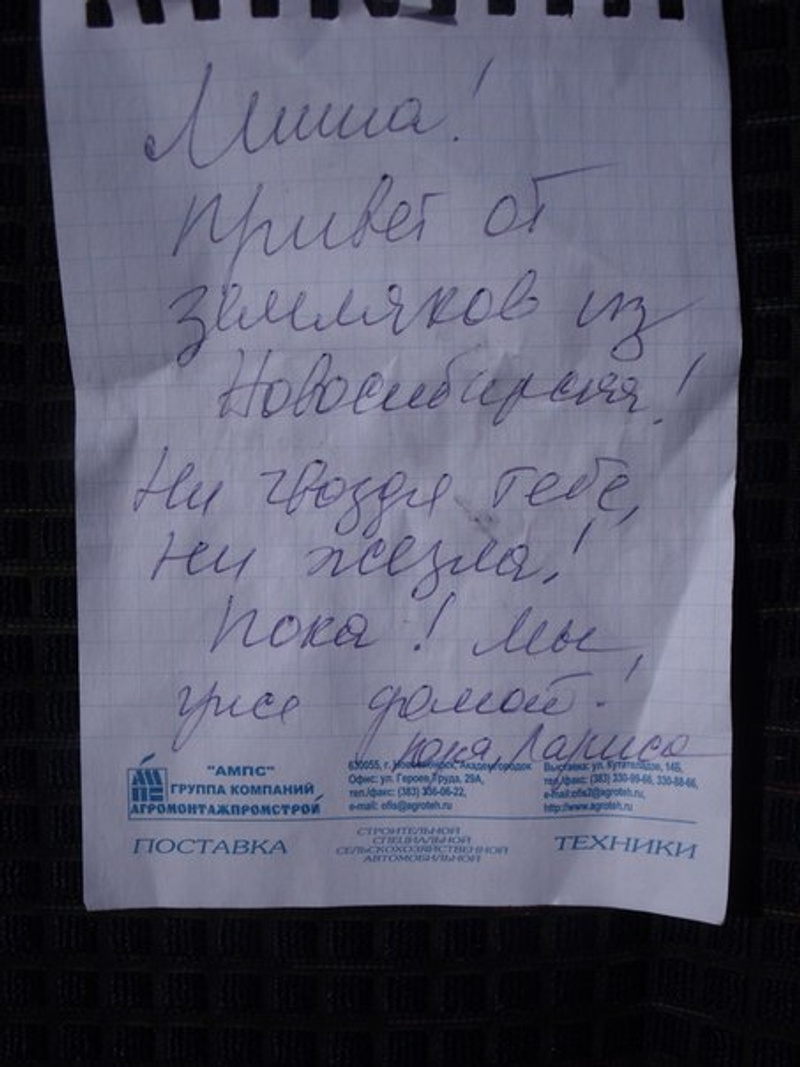 Миша!
Привет от
земляков из
Новосибирска!
Ни гвоздя тебе,
ни жезла!
Пока! Мы
уже домой!
Лариса
"АМПС"
ГРУППА КОМПАНИЙ
АГРОМОНТАЖПРОМСТРОЙ
630055, г. Новосибирск, Академгородок
Офис: ул. Героев Труда, 29А,
тел./факс: (383) 336-06-22,
e-mail: ofis@agroteh.ru
Выставка: ул. Кутателадзе, 14Б,
тел./факс: (383) 330-99-66, 330-88-66,
e-mail:ofis2@agroteh.ru,
http://www.agroteh.ru
ПОСТАВКА
СТРОИТЕЛЬНОЙ
СПЕЦИАЛЬНОЙ
СЕЛЬСКОХОЗЯЙСТВЕННОЙ
АВТОМОБИЛЬНОЙ
ТЕХНИКИ